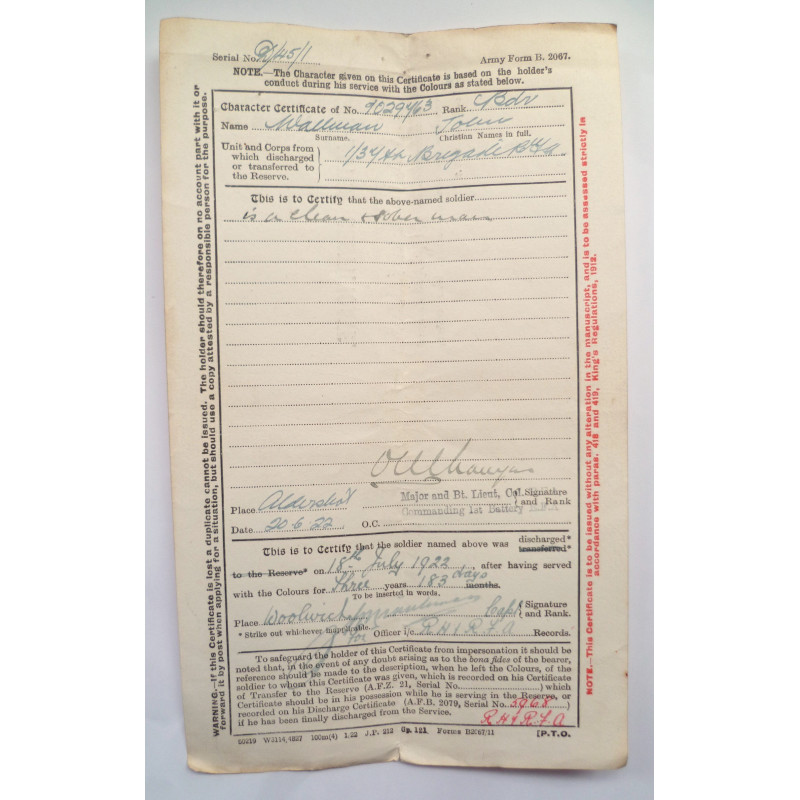 Serial No. 45/1
Army Form B. 2067.
NOTE.—The Character given on this Certificate is based on the holder's
conduct during his service with the Colours as stated below.
Character Certificate of No. Rank Bdr
Name Wallman John
Surname. Christian Names in full.
Unit and Corps from
which discharged
or transferred to
the Reserve.
1/34th Brigade RFA
This is to Certify that the above-named soldier
is a clean & sober man
Major and Bt. Lieut. Col. Signature
Commanding 1st Battery and Rank
Place Aldershot
Date 20 6 22 O.C.
This is to Certify that the soldier named above was discharged*
transferred*
to the Reserve* on 18th July 1922, after having served
with the Colours for Three years 183 days months.
To be inserted in words.
Place Woolwich Capt Signature
and Rank.
* Strike out whichever inapplicable. for Officer i/c R.H & R.F.A Records.
To safeguard the holder of this Certificate from impersonation it should be
noted that, in the event of any doubt arising as to the bona fides of the bearer,
reference should be made to the description, when he left the Colours, of the
soldier to whom this Certificate was given, which is recorded on his Certificate
of Transfer to the Reserve (A.F.Z. 21, Serial No. ) which
Certificate should be in his possession while he is serving in the Reserve, or
recorded on his Discharge Certificate (A.F.B. 2079, Serial No. 3968 )
if he has been finally discharged from the Service. R.H & R.F.A
W3114 4827 100m(4) 1/22 J.P. 212 Gp. 121 Forms B2067/11 [P.T.O.
WARNING.—If this Certificate is lost a duplicate cannot be issued. The holder should therefore on no account part with it or
forward it by post when applying for a situation, but should use a copy attested by a responsible person for the purpose.
NOTE.—This Certificate is to be issued without any alteration in the manuscript, and is to be assessed strictly in
accordance with paras. 418 and 419, King's Regulations, 1912.